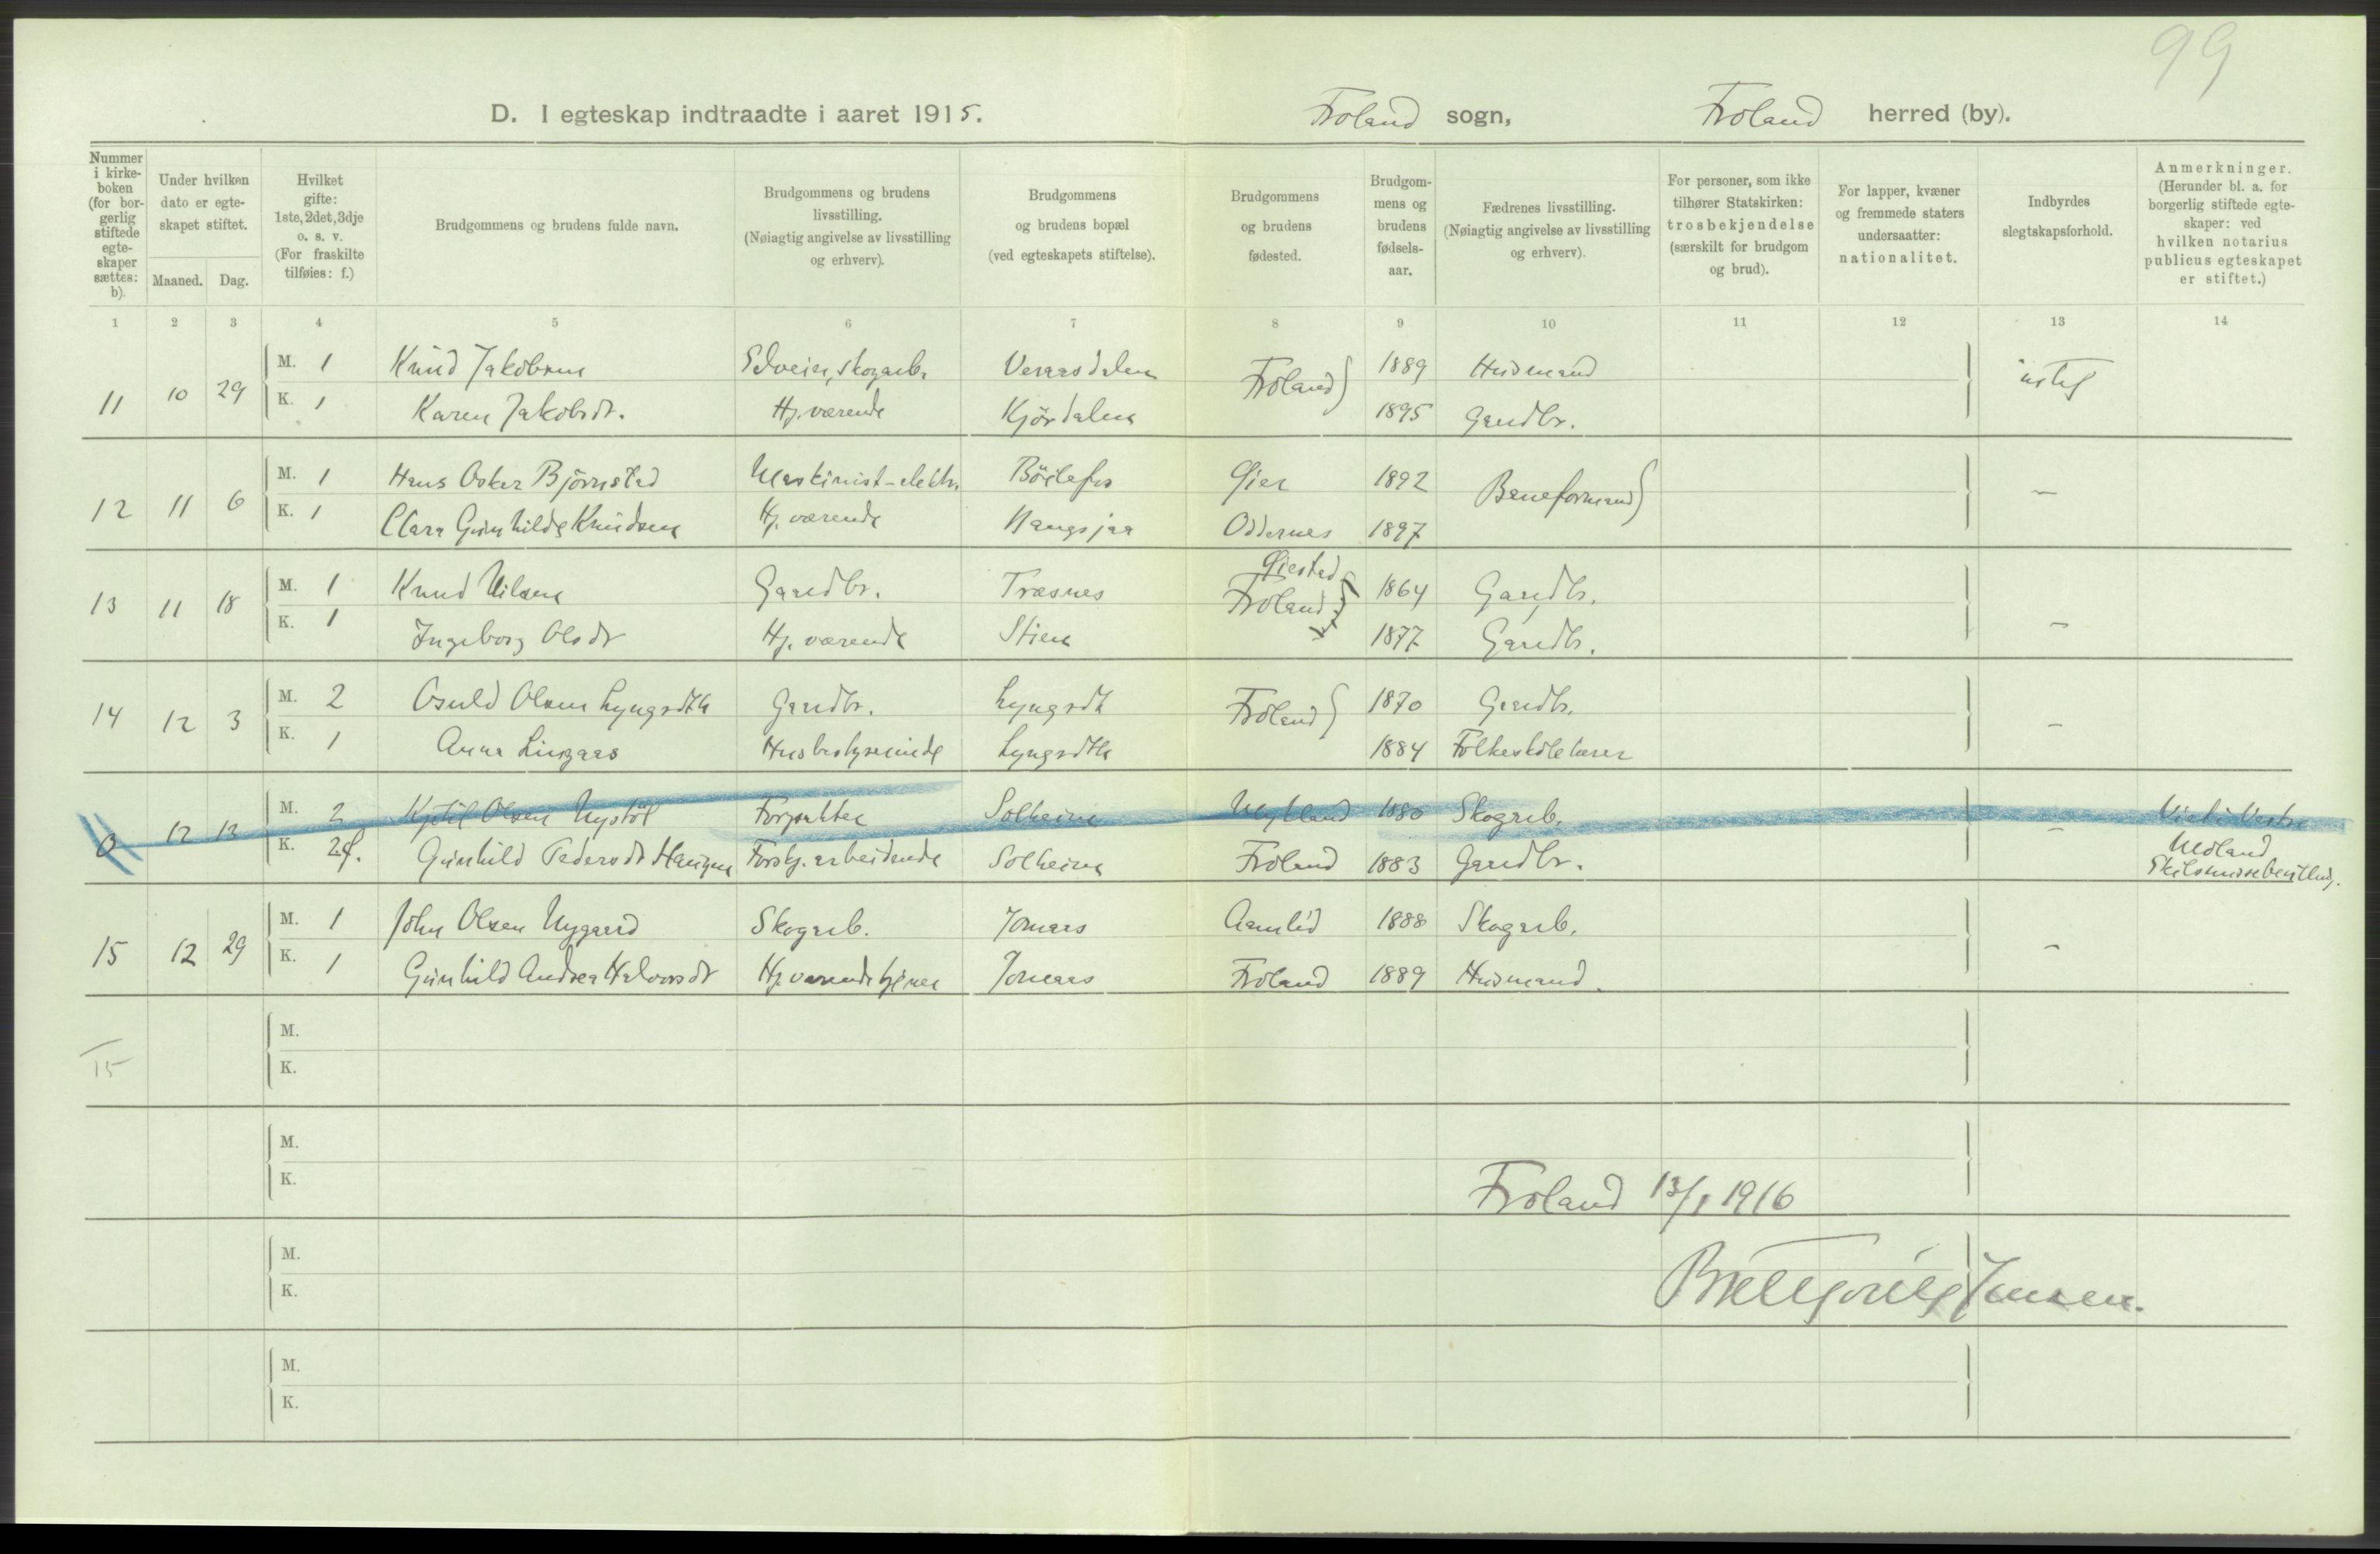 99
D. I egteskap indtraadte i aaret 1915. Froland sogn, Froland herred (by).
Nummer i kirke-boken (for bor-gerlig stiftede egte-skaper sættes: b).
Under hvilken dato er egte-skapet stiftet.
Maaned. Dag.
Hvilket gifte: 1ste, 2det, 3dje o. s. v. (For fraskilte tilføies: f.)
Brudgommens og brudens fulde navn.
Brudgommens og brudens livsstilling. (Nøiagtig angivelse av livsstilling og erhverv).
Brudgommens og brudens bopæl (ved egteskapets stiftelse).
Brudgommens og brudens fødested.
Brudgom-mens og brudens fødsels-aar.
Fædrenes livsstilling. (Nøiagtig angivelse av livsstilling og erhverv).
For personer, som ikke tilhører Statskirken: trosbekjendelse (særskilt for brudgom og brud).
For lapper, kvæner og fremmede staters undersaatter: nationalitet.
Indbyrdes slegtskapsforhold.
Anmerkninger. (Herunder bl. a. for borgerlig stiftede egte-skaper: ved hvilken notarius publicus egteskapet er stiftet.)
1 2 3 4 5 6 7 8 9 10 11 12 13 14
11 10 29 M. 1 Knud Jakobsen Selveier, skogarb. Froland 1889 Husmand
K. 1 Karen Jakobsdt. Hj. værende Kjørdalen 1895 Gaardbr.
12 11 6 M. 1 Hans Oskar Bjørnstad Maskinist-elektr. Bøilefos 1892 Baneformand
K. 1 Clara Gunhilde Knudsen Hj. værende Oddernes 1897 –
13 11 18 M. 1 Knud Nilsen Gaardbr. Træsnes Øiestad Froland 1864 Gaardbr.
K. 1 Ingeborg Olsdt Hj. værende Stien 1877 Gaardbr. –
14 12 3 M. 2 Osuld Olsen Lyngrdth Gaardbr. Lyngrdt Froland 1870 Gaardbr.
K. 1 Anna Lingaas Husbestyrerinde Lyngrdth 1884 Folkeskolelærer –
0 12 13 M. 2 Kjetil Olsen Nystøl Forpakter Solheim Mykland 1880 Skogarb. –
K. 2 f. Gunhild Pedersdt Haugen Forskj. arbeidende Solheim Froland 1883 Gaardbr. Moland Skilsmissebevilling.
15 12 29 M. 1 John Olsen Nygaard Skogarb. Jomaas Aamlid 1888 Skogarb.
K. 1 Gunhild Andrea Halvorsdt Hj. værende Jomaas Froland 1889 Husmand. –
15 M.
K.
M.
K.
Froland 13/1 1916
M.
K.
Jensen.
M.
K.